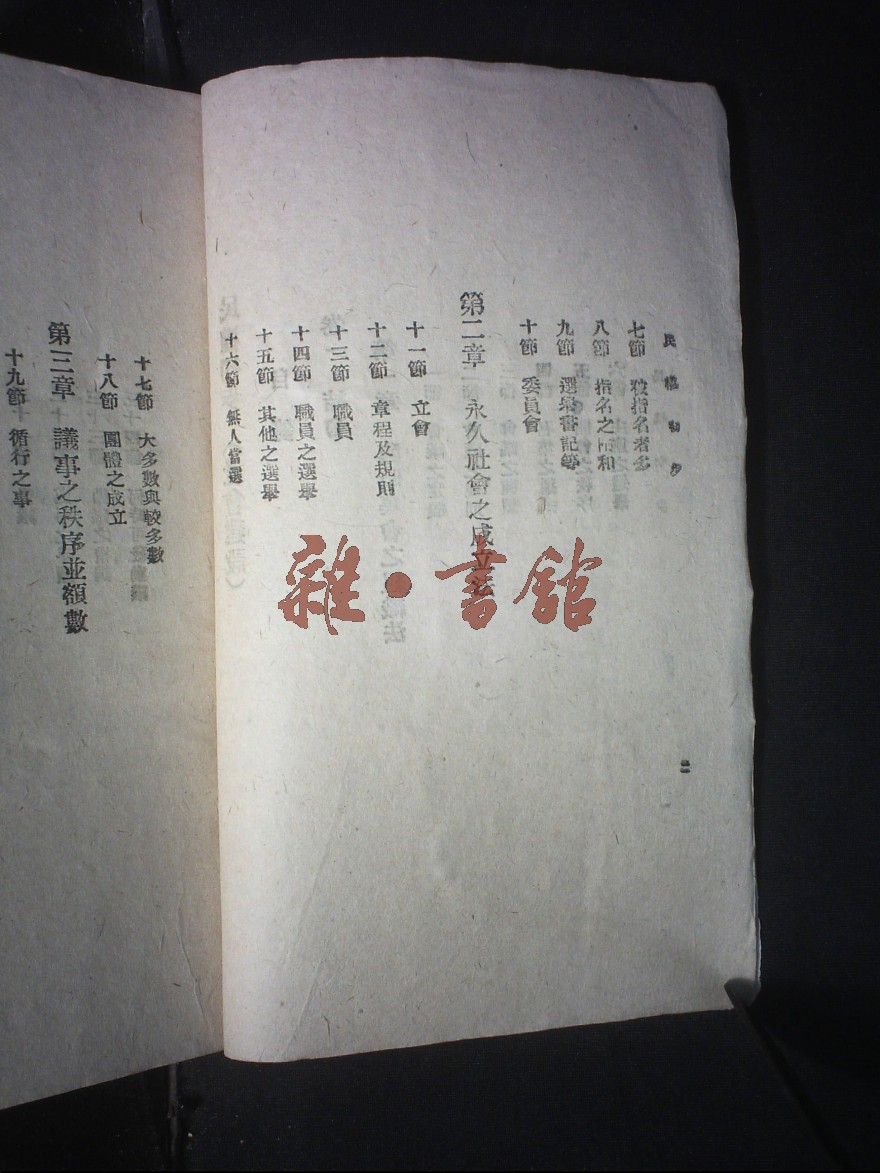 民權初步
七節 被指名者多
八節 指名之附和
九節 選舉書記等
十節 委員會
第二章 永久社會之成立法
十一節 立會
十二節 章程及規則
十三節 職員
十四節 職員之選舉
十五節 其他之選舉
十六節 無人當選
二
十七節 大多數與較多數
十八節 團體之成立
第三章 議事之秩序並額數
十九節 循行之事
雜·書館